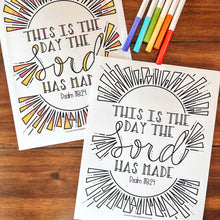 THIS IS THE
DAY THE
Lord
HAS MADE
Psalm 118:24
THIS IS THE
DAY THE
Lord
HAS MADE
Psalm 118:24